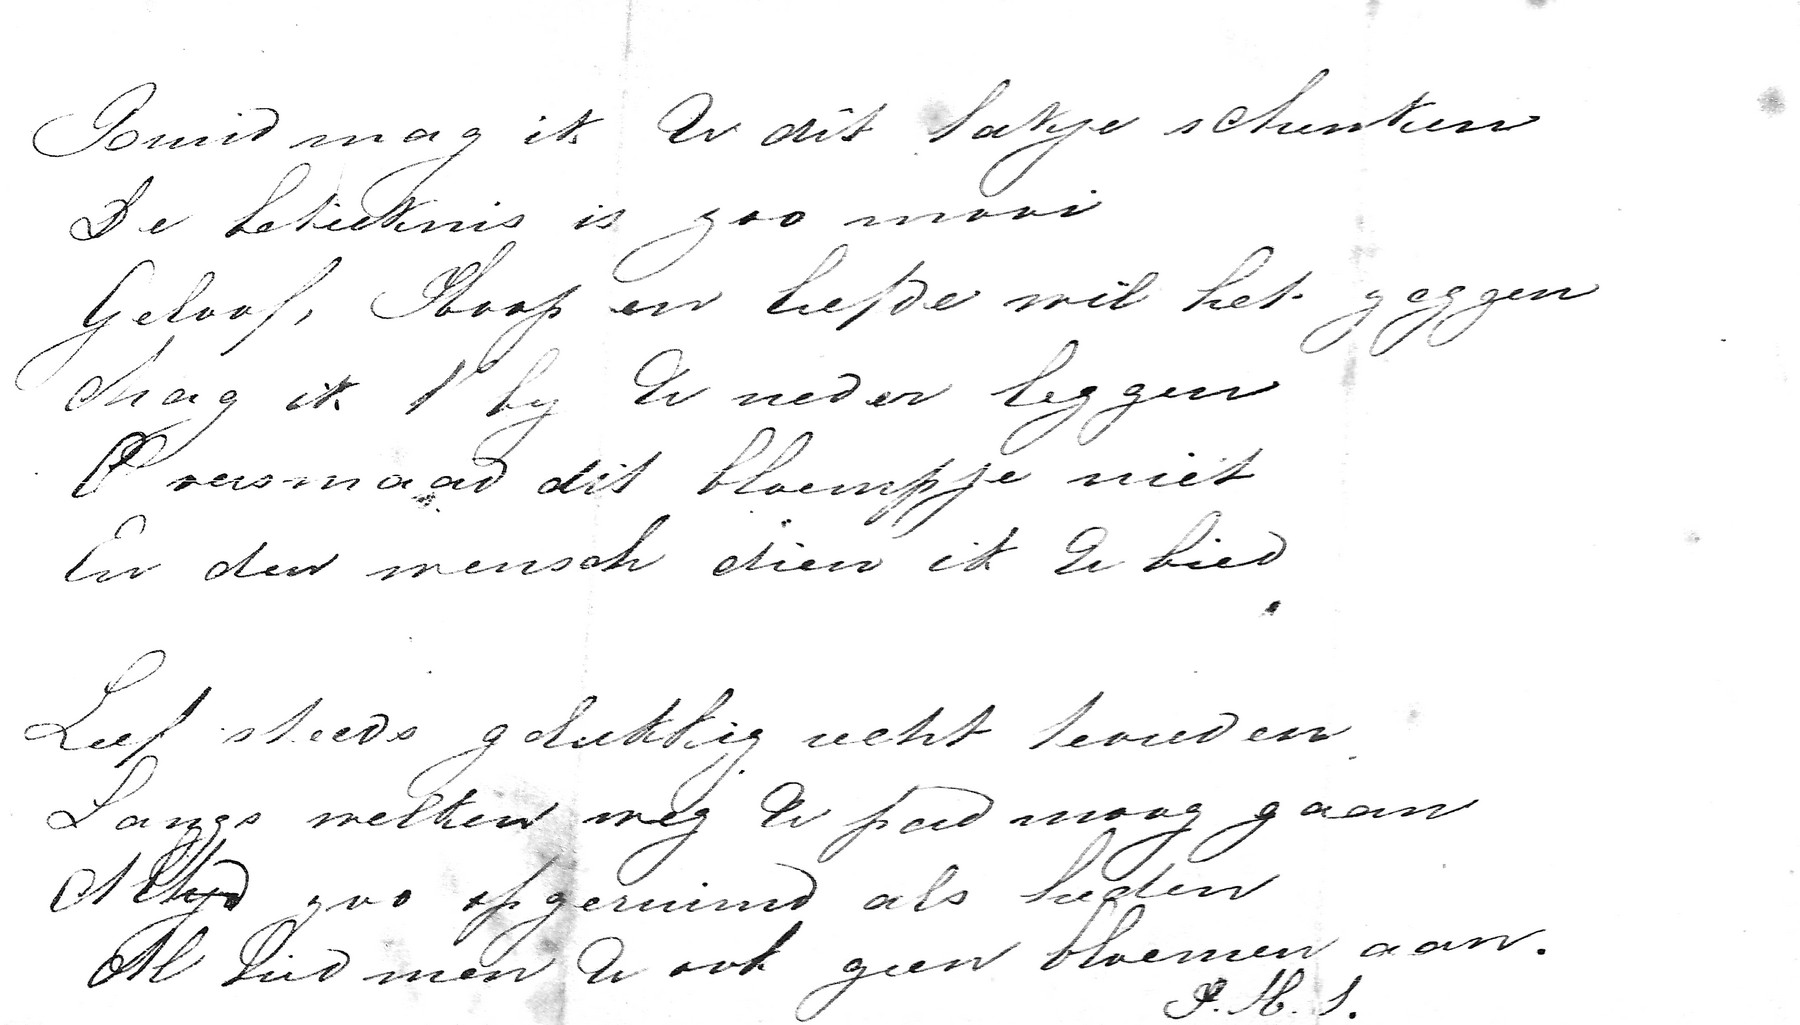 Bruid mag ik U dit takje schenken
De beteeknis is zoo mooi
Geloof, Hoop en liefde wil het zeggen
Mag ik 't by U neder leggen
O versmaad dit bloempje niet
En den mensch dien ik U bied
Leef steeds gelukkig recht tevreden
Langs welken weg U pad moog gaan
Altyd zoo opgeruimd als heden
Al bied men U ook geen bloemen aan.
P. H. S.